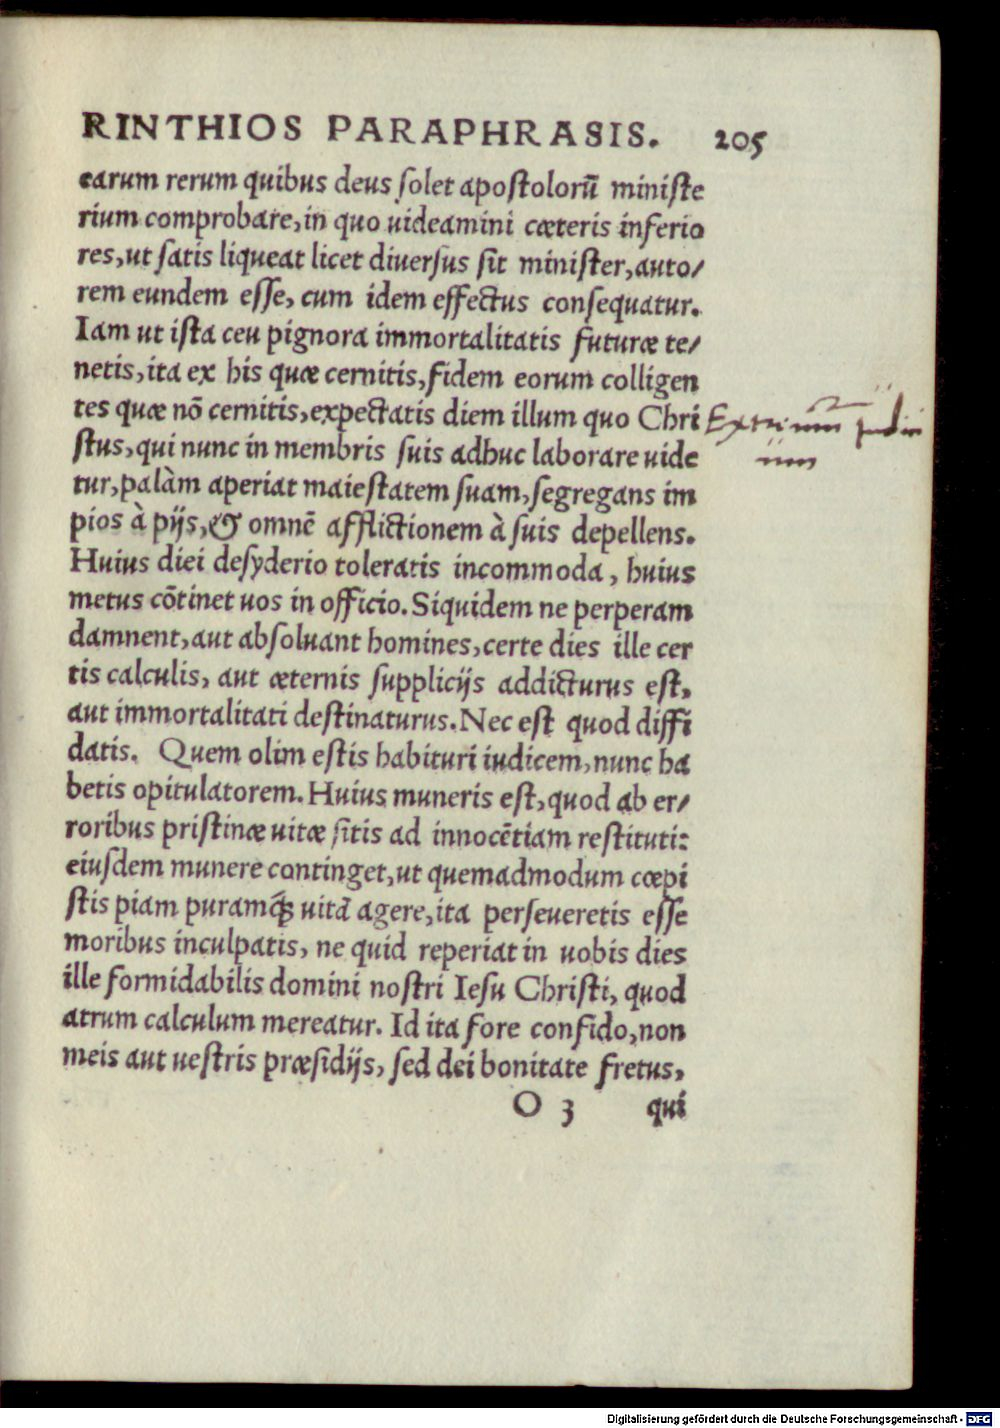 RINTHIOS PARAPHRASIS. 205
earum rerum quibus deus ſolet apoſtolorū miniſte
rium comprobare, in quo uideamini cæteris inferio
res, ut ſatis liqueat licet diuerſus ſit miniſter, auto/
rem eundem eſſe, cum idem effectus conſequatur.
Iam ut iſta ceu pignora immortalitatis futuræ te/
netis, ita ex his quæ cernitis, fidem eorum colligen
tes quæ nō cernitis, expectatis diem illum quo Chri
ſtus, qui nunc in membris ſuis adhuc laborare uide
tur, palàm aperiat maieſtatem ſuam, ſegregans im
pios à pijs, & omnē afflictionem à ſuis depellens.
Huius diei deſyderio toleratis incommoda, huius
metus cōtinet uos in officio. Siquidem ne perperam
damnent, aut abſoluant homines, certe dies ille cer
tis calculis, aut æternis ſupplicijs addicturus eſt,
aut immortalitati deſtinaturus. Nec eſt quod diffi
datis. Quem olim eſtis habituri iudicem, nunc ha
betis opitulatorem. Huius muneris eſt, quod ab er/
roribus priſtinæ uitæ ſitis ad innocētiam reſtituti:
eiuſdem munere continget, ut quemadmodum cœpi
ſtis piam puramq́; uitā agere, ita perſeueretis eſſe
moribus inculpatis, ne quid reperiat in uobis dies
ille formidabilis domini noſtri Ieſu Chriſti, quod
atrum calculum mereatur. Id ita fore confido, non
meis aut ueſtris præſidijs, ſed dei bonitate fretus,
O 3 qui
Digitalisierung gefördert durch die Deutsche Forschungsgemeinschaft - DFG